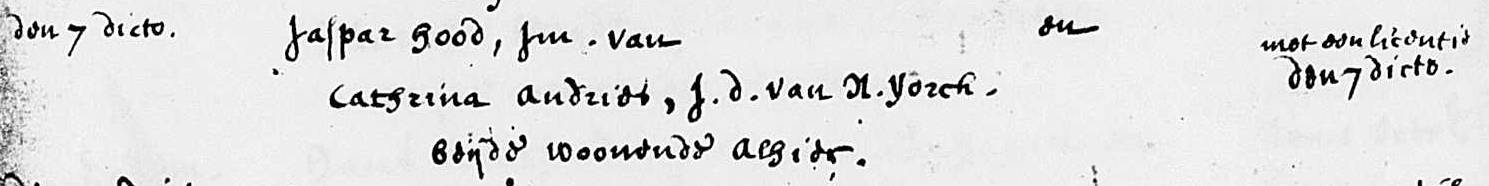 den 7 dicto. Jaspar Hood, Jm. van en met een licentie
Cathrina Andries, J. d. van N. Yorck. den 7 dicto.
beÿde woonende alhier.